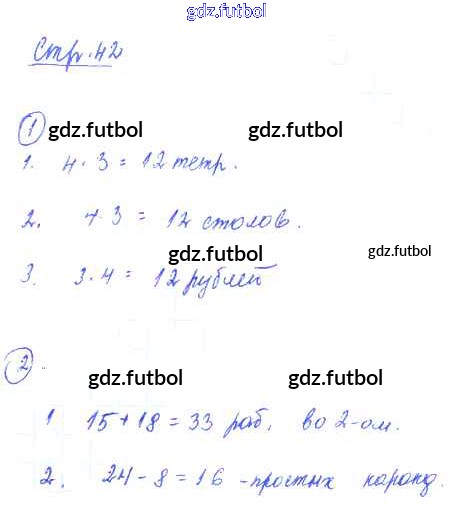 gdz.futbol
Стр. 42
1 gdz.futbol gdz.futbol
1. 4 · 3 = 12 тетр.
2. 4 · 3 = 12 столов.
gdz.futbol gdz.futbol
3. 3 · 4 = 12 рублей
2
gdz.futbol gdz.futbol
1 15 + 18 = 33 раб, во 2-ом.
2. 24 - 8 = 16 - простых каранд.